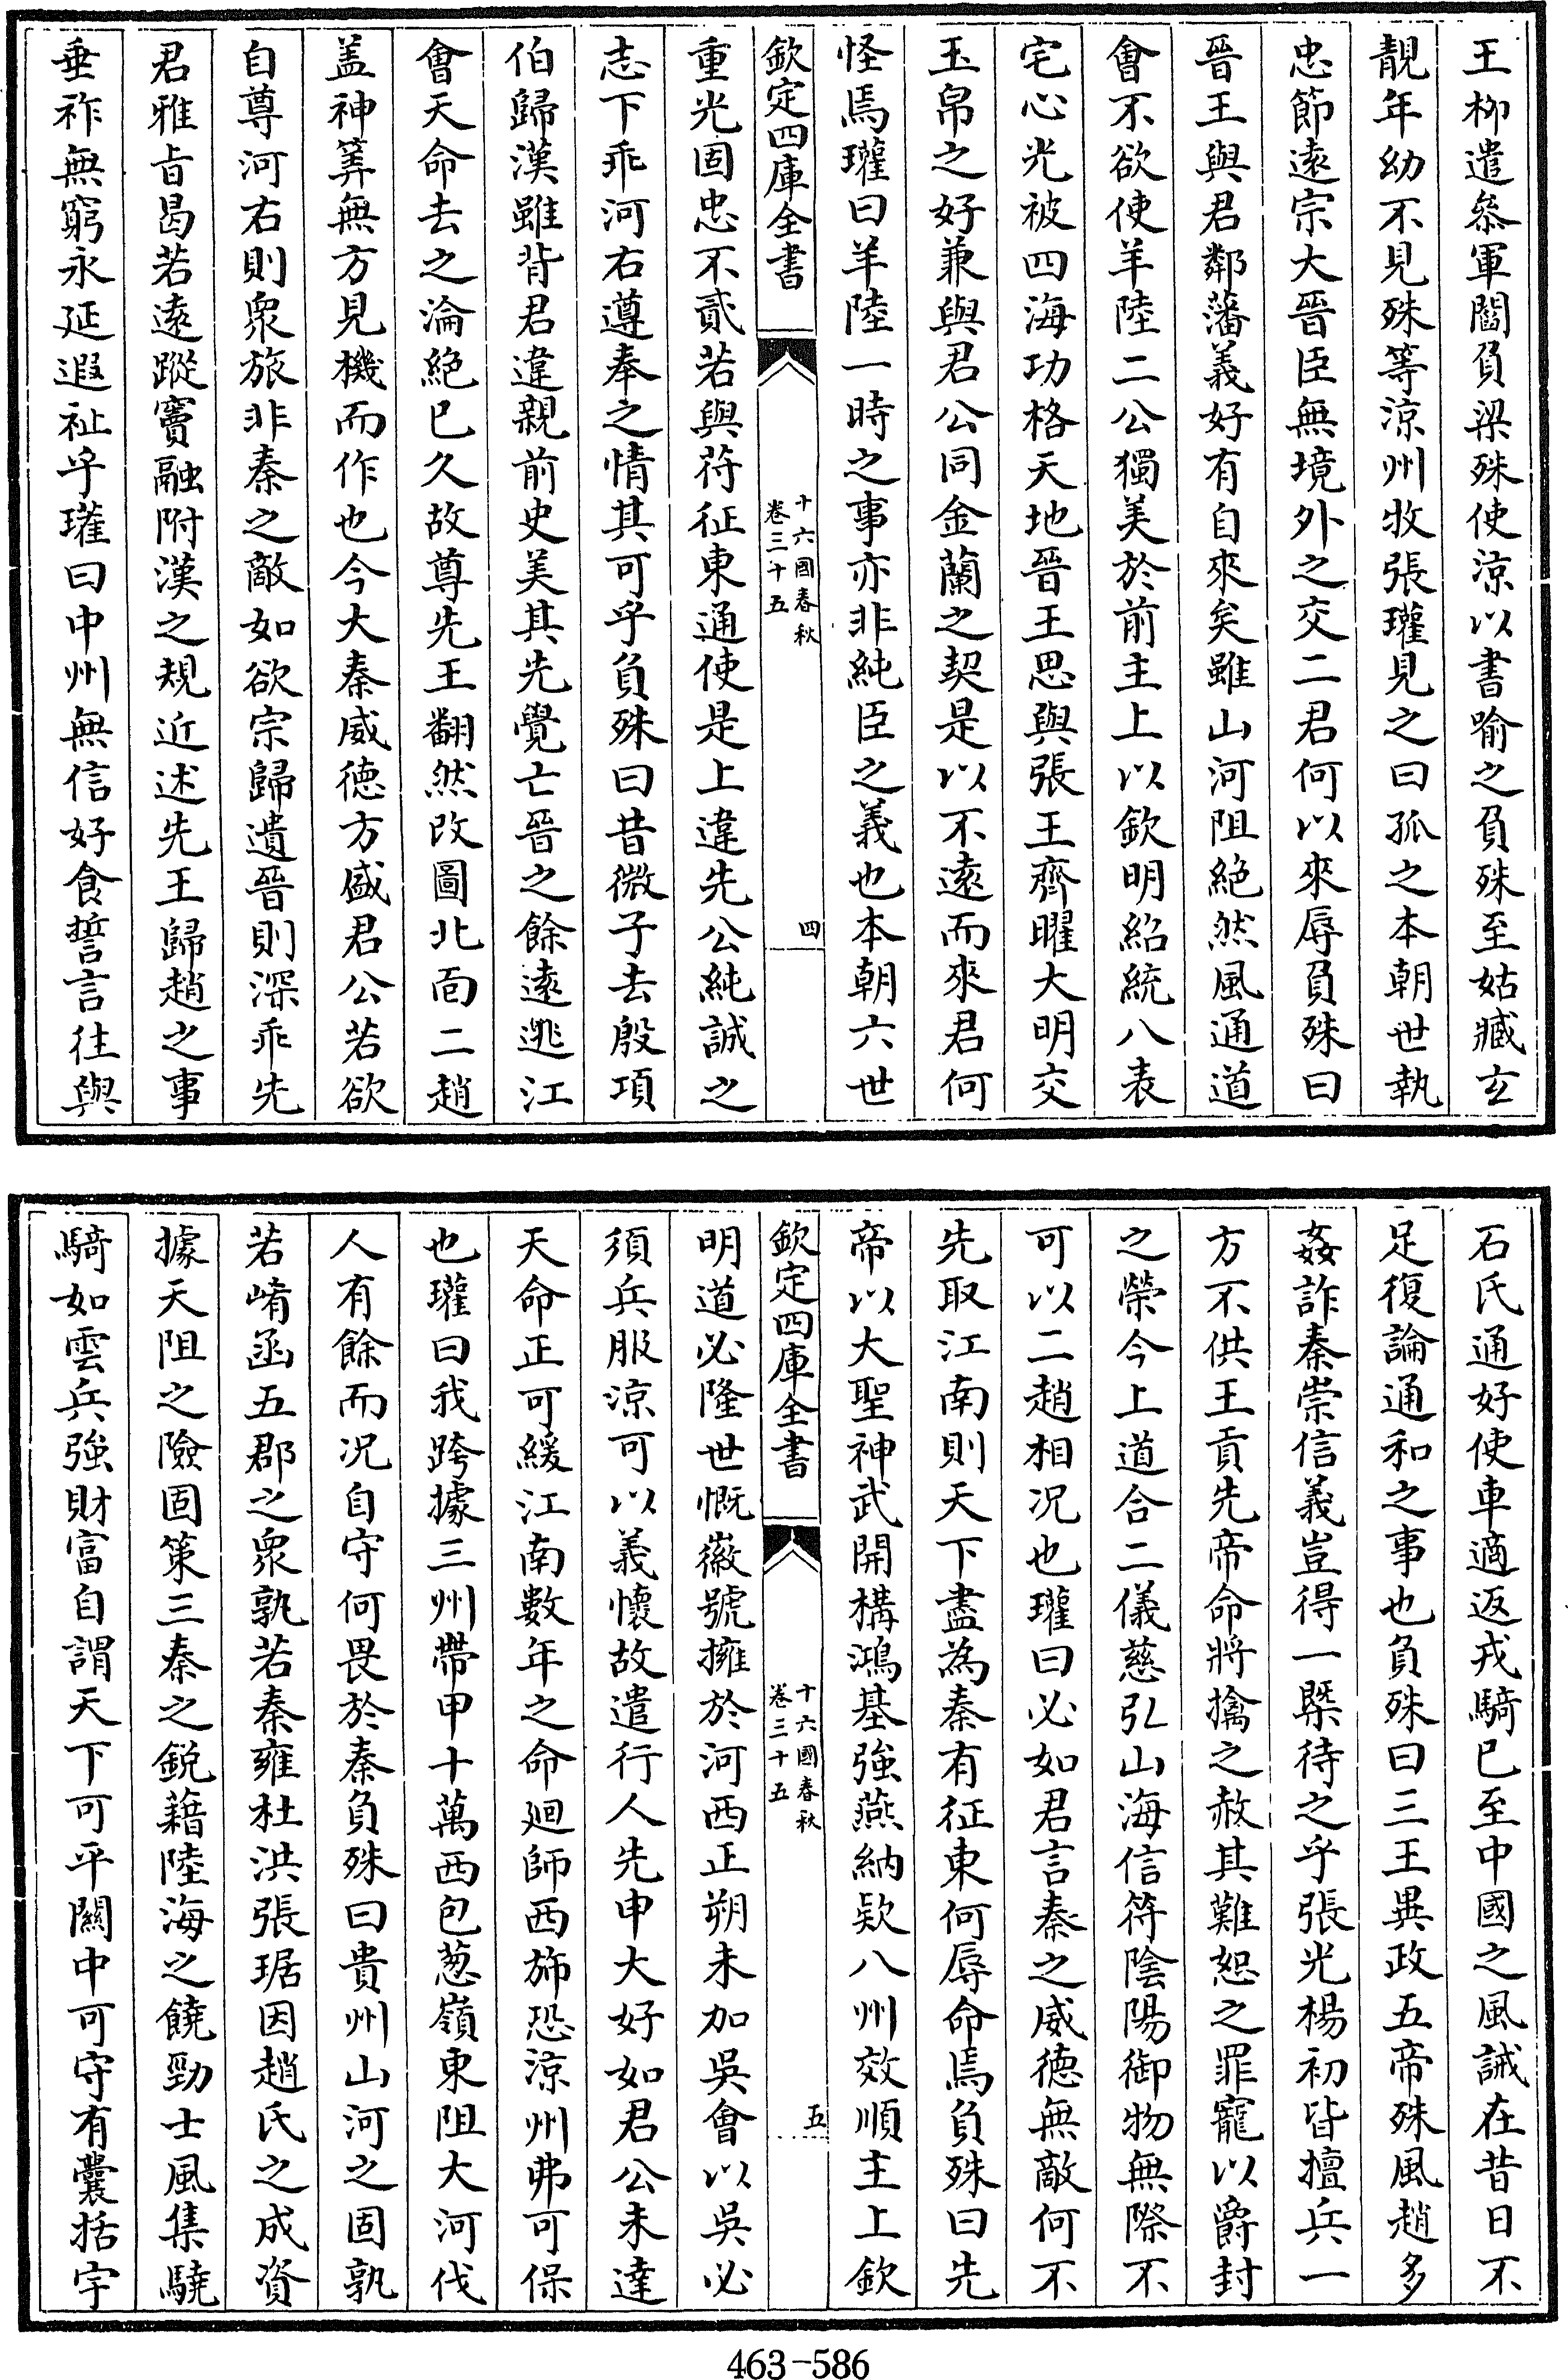 王柳遣叅軍閻負梁殊使涼以書喻之負殊至姑臧玄
靚年幼不見殊等涼州牧張瓘見之曰孤之本朝世執
忠節遠宗大晉臣無境外之交二君何以來辱負殊曰
晉王與君鄰藩義好有自來矣雖山河阻絶然風通道
會不欲使羊陸二公獨美於前主上以欽明紹統八表
宅心光被四海功格天地晉王思與張王齊曜大明交
玉帛之好兼與君公同金蘭之契是以不遠而來君何
怪焉瓘曰羊陸一時之事亦非純臣之義也本朝六世
欽定四庫全書
十六國春秋
卷三十五
四
重光固忠不貳若與苻征東通使是上違先公純誠之
志下乖河右遵奉之情其可乎負殊曰昔微子去殷項
伯歸漢雖背君違親前史美其先覺亡晉之餘遠逃江
會天命去之淪絶已久故尊先王翻然改圖北面二趙
盖神筭無方見機而作也今大秦威德方盛君公若欲
自尊河右則衆旅非秦之敵如欲宗歸遺晉則深乖先
君雅㫖曷若遠蹤竇融附漢之規近述先王歸趙之事
垂祚無窮永延遐祉乎瓘曰中州無信好食誓言往與
石氏通好使車適返戎騎已至中國之風誡在昔日不
足復論通和之事也負殊曰三王異政五帝殊風趙多
姦詐秦崇信義豈得一槩待之乎張光楊初皆擅兵一
方不供王貢先帝命將擒之赦其難恕之罪寵以爵封
之榮今上道合二儀慈弘山海信符陰陽御物無際不
可以二趙相況也瓘曰必如君言秦之威德無敵何不
先取江南則天下盡為秦有征東何辱命焉負殊曰先
帝以大聖神武開構鴻基強燕納欵八州效順主上欽
欽定四庫全書
十六國春秋
卷三十五
五
明道必隆世慨徽號擁於河西正朔未加吳會以吳必
須兵服涼可以義懷故遣行人先申大好如君公未達
天命正可緩江南數年之命廻師西斾恐涼州弗可保
也瓘曰我跨據三州帶甲十萬西包葱嶺東阻大河伐
人有餘而况自守何畏於秦負殊曰貴州山河之固孰
若崤函五郡之衆孰若秦雍杜洪張琚因趙氏之成資
據天阻之險固策三秦之鋭藉陸海之饒勁士風集驍
騎如雲兵強財富自謂天下可平闗中可守有囊括宇
463-586